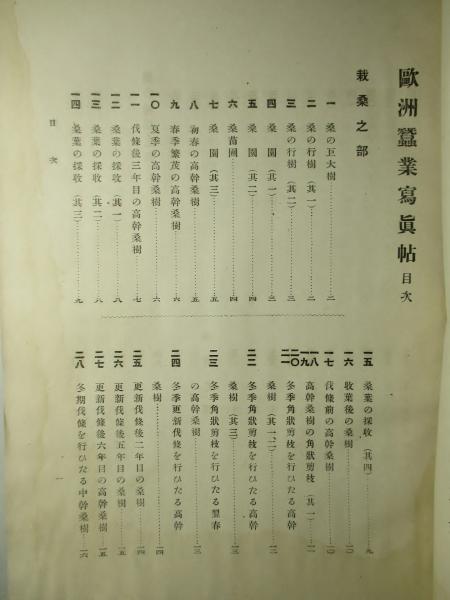 歐洲蠶業寫眞帖 目次
栽桑之部
一 桑の巨大樹……二
二 桑の行樹（其一）……二
三 桑の行樹（其二）……三
四 桑園（其一）……三
五 桑園（其二）……四
六 桑苗圃……四
七 桑園（其三）……五
八 初春の高幹桑樹……五
九 春季繁茂の高幹桑樹……六
一〇 夏季の高幹桑樹……六
一一 伐條後三年目の高幹桑樹……七
一二 桑葉の採收（其一）……八
一三 桑葉の採收（其二）……八
一四 桑葉の採收（其三）……九
目次
一五 桑葉の採收（其四）……九
一六 收葉後の桑樹……一〇
一七 伐條前の高幹桑樹……一〇
一八 一九 高幹桑樹の角狀剪枝（其一）……一一
二〇 二一 冬季角狀剪枝を行ひたる高幹
桑樹（其一、二）……一二
二二 冬季角狀剪枝を行ひたる高幹
桑樹（其三）……一三
二三 冬季角狀剪枝を行ひたる翌春
の高幹桑樹……一三
二四 冬季更新伐條を行ひたる高幹
桑樹……一四
二五 更新伐條後二年目の桑樹……一四
二六 更新伐條後五年目の桑樹……一五
二七 更新伐條後六年目の高幹桑樹……一五
二八 冬期伐條を行ひたる中幹桑樹……一六
一